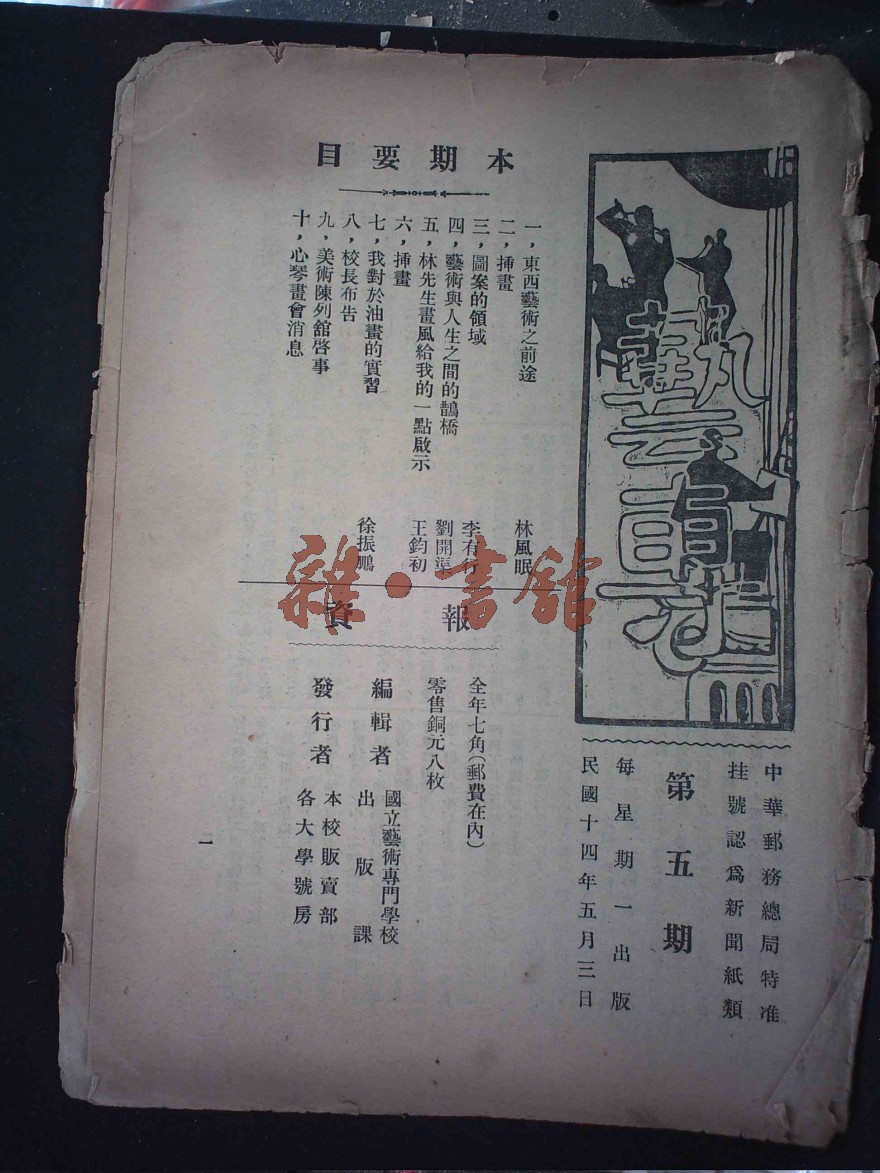 藝專
中華郵務總局特准
挂號認為新聞紙類
第五期
每星期一出版
民國十四年五月三日
本期要目
一，東西藝術之前途 林風眠
二，揷畫
三，圖案的領域 李有行
四，藝術與人生之間的鵲橋 劉開渠
五，林先生畫風給我的一點啟示 王鈞初
六，揷畫
七，我對於油畫的實習 徐振鵬
八，校長布告
九，美術陳列舘啓事
十，心琴畫會消息
報資
全年七角（郵費在內）
零售銅元八枚
編輯者 國立藝術專門學校
出版課
發行者 本校販賣部
各大學號房
一
雜·書舘